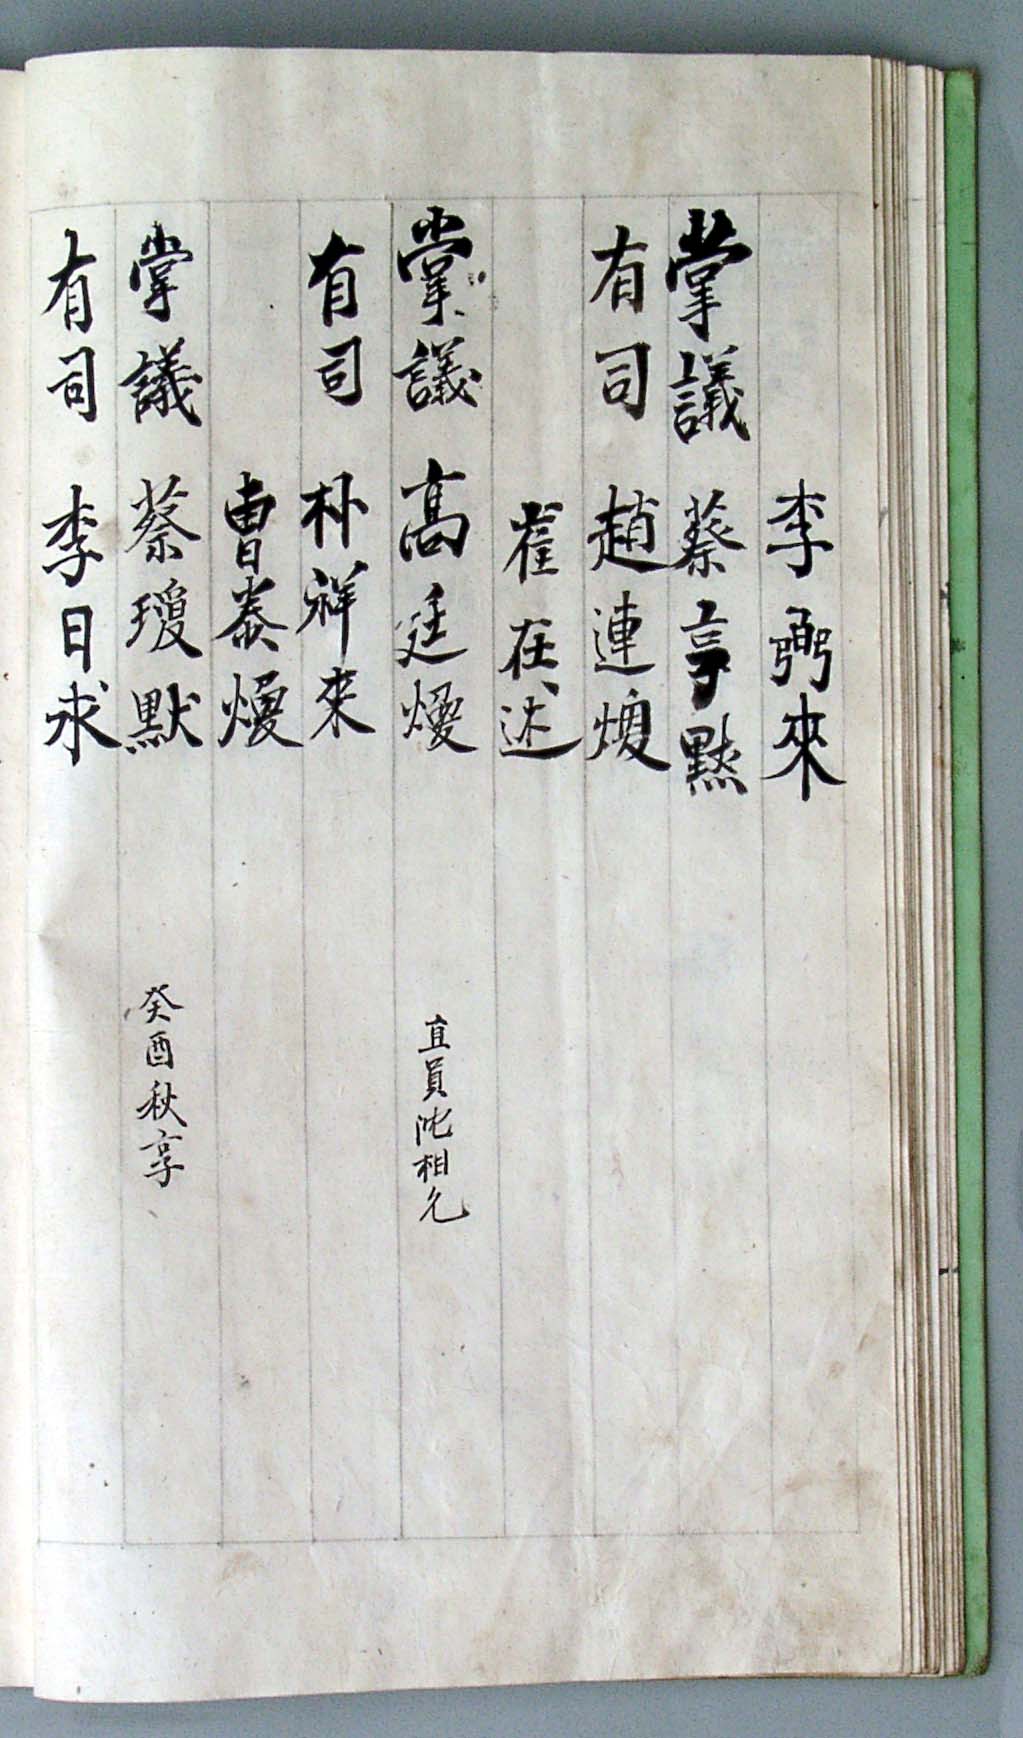 李弼來
掌議 蔡亨黙
有司 趙連煥
崔在述
掌議 高廷燮
直員 沈相允
有司 朴祥來
曺泰煥
掌議 蔡瓊默
癸酉秋享
有司 李日求